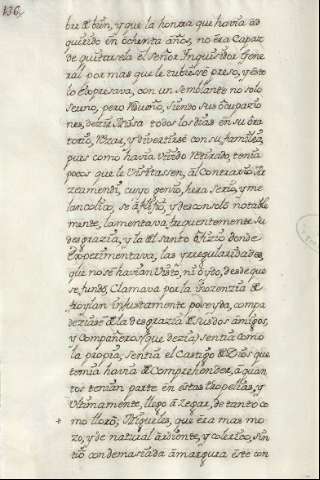 136,
bre de bien, y que la honrra que havia ad
quirido en ochenta años, no era Capaz
de quitarsela el Señor Inquisidor Gene
ral por mas que le tubiesse preso, y esto
lo expresava, con un semblante no solo
sereno, pero risueño, siendo sus ocupacio
nes, dezir Missa todos los dias en su ora
torio, Rezar, y divertirse con su familia,
pues como havia vivido Retirado, tenia
pocos que le visitassen, al Contrario Ari
zeamendi, cuyo genio, hera serio, y me
lancolico, se afligio, y desconsolo notable
mente, lamentava frequentemente su
desgrazia, y la del santo oficio donde
experimentava, las yrregularidades,
que no se havian visto, ni oydo, desde que
se fundo, Clamava por la ynozenzia de
froylan injustamente poseyda, compa
deziase de la desgrazia de sus dos amigos,
y Compañeros (que dezia) sentia como
la propia, sentia el Castigo de Dios que
temia havia de Comprehender, a quan
tos tenian parte en estas tropelias, y
Ultimamente, llego a zegar, de tanto co
+ mo lloro; Migueles, que era mas mo
zo, y de natural ardiente, y colerico, sin
tio con demasiada amargura este con